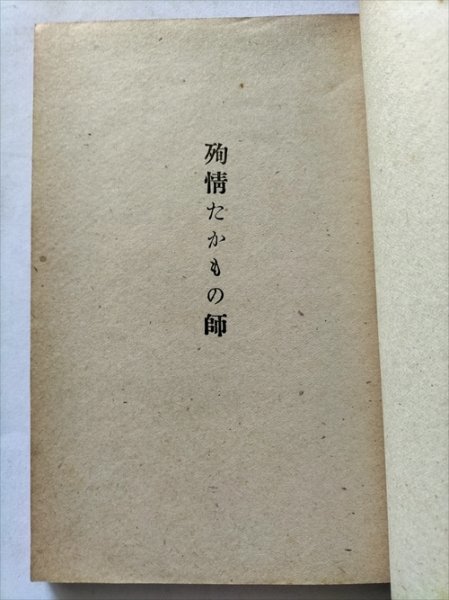 殉情たかもの師